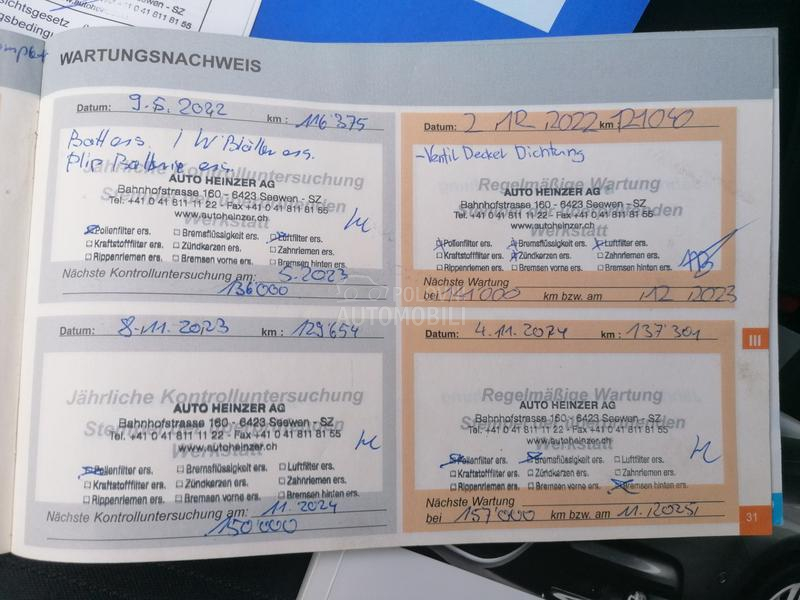 WARTUNGSNACHWEIS
Datum: 9.5.2022 km: 116'375
Batt ers. / W Blätter ers.
plip Batterie ers.
Jährliche Kontrolluntersuchung
AUTO HEINZER AG
Bahnhofstrasse 160 - 6423 Seewen - SZ
Tel. +41 0 41 811 11 22 - Fax +41 0 41 811 81 55
www.autoheinzer.ch
Werkstatt
Pollenfilter ers. Bremsflüssigkeit ers. Luftfilter ers.
Kraftstofffilter ers. Zündkerzen ers. Zahnriemen ers.
Rippenriemen ers. Bremsen vorne ers. Bremsen hinten ers.
Nächste Kontrolluntersuchung am: 5.2023
136'000
Datum: 2 12 2022 km: 121040
- Ventil Deckel Dichtung
Regelmäßige Wartung
AUTO HEINZER AG
Bahnhofstrasse 160 - 6423 Seewen - SZ
Tel. +41 0 41 811 11 22 - Fax +41 0 41 811 81 55
www.autoheinzer.ch
Werkstatt
Pollenfilter ers. Bremsflüssigkeit ers. Luftfilter ers.
Kraftstofffilter ers. Zündkerzen ers. Zahnriemen ers.
Rippenriemen ers. Bremsen vorne ers. Bremsen hinten ers.
Nächste Wartung
bei 141'000 km bzw. am 12 2023
POLOVNI
AUTOMOBILI
Datum: 8.11.2023 km: 129'654
Jährliche Kontrolluntersuchung
AUTO HEINZER AG
Bahnhofstrasse 160 - 6423 Seewen - SZ
Tel. +41 0 41 811 11 22 - Fax +41 0 41 811 81 55
www.autoheinzer.ch
Werkstatt
Pollenfilter ers. Bremsflüssigkeit ers. Luftfilter ers.
Kraftstofffilter ers. Zündkerzen ers. Zahnriemen ers.
Rippenriemen ers. Bremsen vorne ers. Bremsen hinten ers.
Nächste Kontrolluntersuchung am: 11.2024
150'000
Datum: 4.11.2024 km: 137'301
Regelmäßige Wartung
AUTO HEINZER AG
Bahnhofstrasse 160 - 6423 Seewen - SZ
Tel. +41 0 41 811 11 22 - Fax +41 0 41 811 81 55
www.autoheinzer.ch
Werkstatt
Pollenfilter ers. Bremsflüssigkeit ers. Luftfilter ers.
Kraftstofffilter ers. Zündkerzen ers. Zahnriemen ers.
Rippenriemen ers. Bremsen vorne ers. Bremsen hinten ers.
Nächste Wartung
bei 157'000 km bzw. am 11.2025
III
31